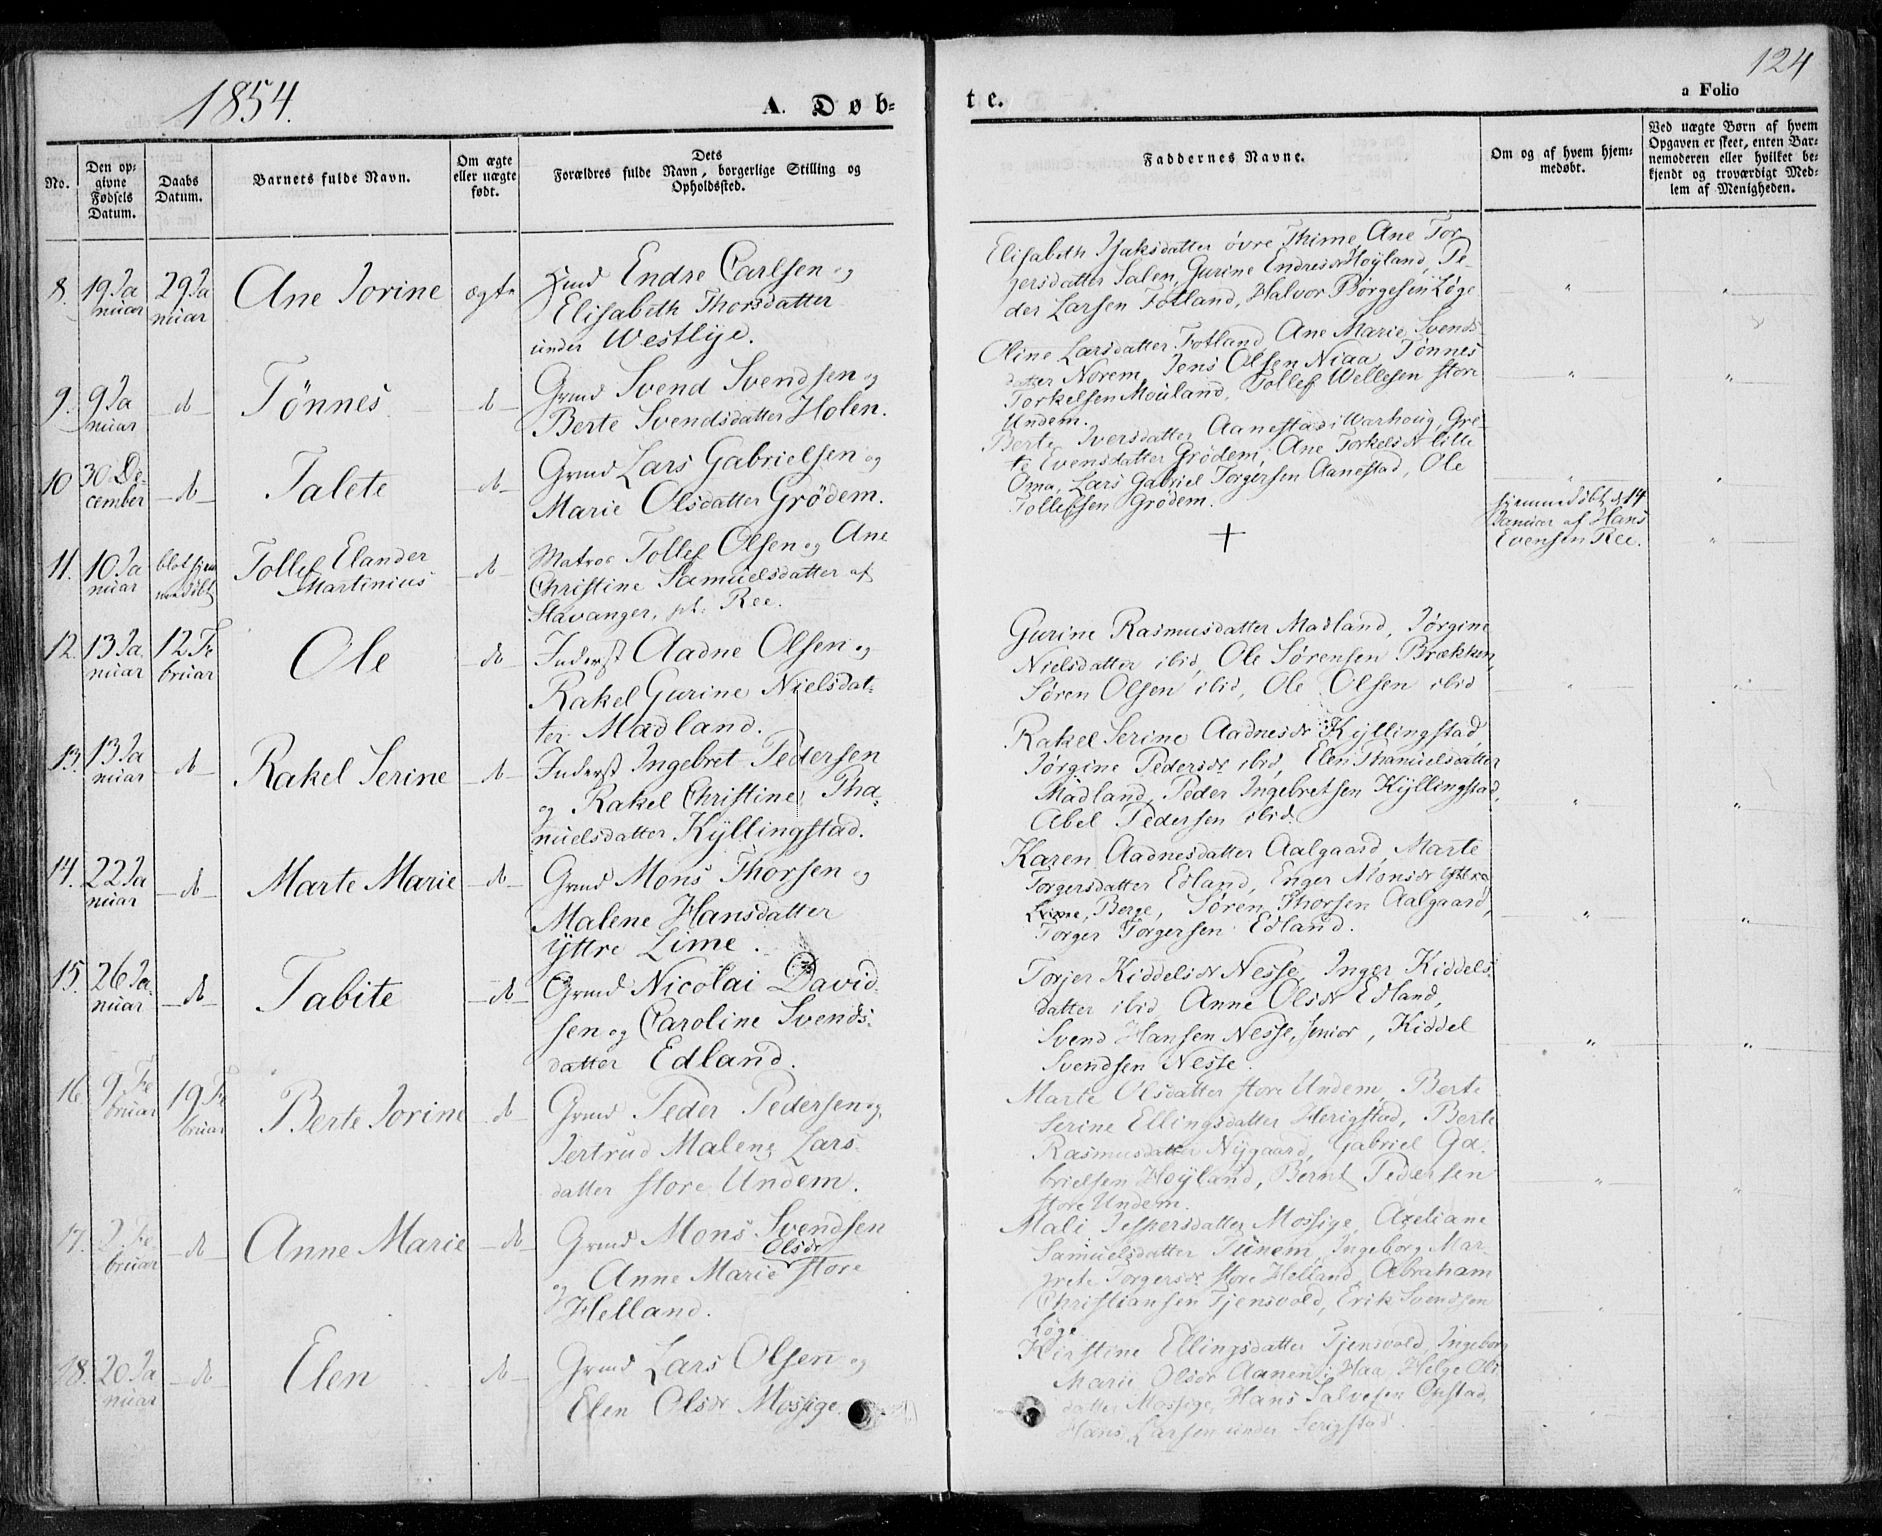 1854.
A. Døb-
te.
124
a Folio
No.
Den op-
givne
Fødsels
Datum.
Daabs
Datum.
Barnets fulde Navn.
Om ægte
eller uægte
født.
Dets
Forældres fulde Navn, borgerlige Stilling og
Opholdssted.
Faddernes Navne.
Om og af hvem hjem-
medøbt.
Ved uægte Børn af hvem
Opgaven er skeet, enten Bar-
nemoderen eller hvilket be-
kjendt og troværdigt Med-
lem af Menigheden.
8.
19 Ja
nuar
29 Ja
nuar
Ane Jorine
ægte
Hmd Endre Carlsen og
Elisabeth Thorsdatter
under Westlye.
Elisabeth Isaksdatter øvre Thime, Ane Tor
gersdatter Salen, Gurine Endresdr Høyland, Pe-
der Larsen Fotland, Halvor Børgesen Løge
"
"
9.
9 Ja
nuar
do
Tønnes
do
Grmd Svend Svendsen og
Berte Svendsdatter Holen.
Oline Larsdatter Fotland, Ane Marie Svends-
datter Norem, Jens Olsen Niaa, Tønnes
Torkelsen Mouland, Tollef Wellesen store
Undem.
"
"
10
30 De-
cember
do
Talete
do
Grmd Lars Gabrielsen og
Marie Olsdatter Grødem.
Berte Iversdatter Aanestad i Warhoug, Gre-
te Evensdatter Grødem, Ane Torkelsdr litle
Oma, Lars Gabriel Torgersen Aanestad, Ole
Tollefsen Grødem.
"
"
11.
10 Ja
nuar
blot hjem
medøbt
Tollef Elander
Martinius
do
Matros Tollef Olsen og Ane
Christine Samuelsdatter af
Stavanger, pt. Ree.
+
hjemmedøbt d. 14
Januar af Hans
Evensen Ree.
"
12.
13 Ja
nuar
12 Fe
bruar
Ole
do
Inderst Aadne Olsen og
Rakel Gurine Nielsdat-
ter Madland.
Gurine Rasmusdatter Madland, Jørgine
Nielsdatter ibid, Ole Sørensen Brækken,
Søren Olsen ibid, Ole Olsen ibid
"
"
13.
13 Ja
nuar
do
Rakel Serine
do
Inderst Ingebret Pedersen
og Rakel Christine Tha-
nuelsdatter Kyllingstad.
Rakel Serine Aadnesdr Kyllingstad,
Jørgine Pedersdr ibid, Elen Thanuelsdatter
Madland, Peder Ingebretsen Kyllingstad,
Abel Pedersen ibid.
"
"
14.
22 Ja
nuar
do
Marte Marie
do
Grmd Mons Thorsen og
Malene Hansdatter
yttre Lime.
Karen Aadnesdatter Aalgaard, Marte
Torgersdatter Edland, Enger Monsdr yttre
Lime, Berge, Søren Thorsen Aalgaard,
Torger Torgersen Edland.
"
"
15.
26 Ja
nuar
do
Tabite
do
Grmd Nicolai David-
sen og Caroline Svends-
datter Edland.
Torjer Kiddelsdr Nesse, Inger Kiddels-
datter ibid, Anne Olsdr Edland,
Svend Hansen Nesse, senior, Kiddel
Svendsen Nesse.
"
"
16.
9 Fe
bruar
19 Fe
bruar
Berte Jorine
do
Grmd Peder Pedersen og
Jertrud Malene Lars-
datter store Undem.
Marte Olsdatter store Undem, Berte
Serine Ellingsdatter Herigstad, Berte
Rasmusdatter Nygaard, Gabriel Ga-
brielsen Høyland, Bernt Pedersen
store Undem.
"
"
17.
2 Fe
bruar
do
Anne Marie
do
Grmd Mons Svendsen
og Anne Marie Olsdr store
Helland.
Mali Jespersdatter Mossige, Axeliane
Samuelsdatter Tunem, Ingeborg Mar-
grete Torgersdr store Helland, Abraham
Christiansen Tjensvold, Erik Svendsen
Løge
"
"
18.
20 Ja
nuar
do
Elen
do
Grmd Lars Olsen og
Elen Olsdr Mossige
Kirstine Ellingsdatter Tjensvold, Ingeborg
Marie Olsdr Aanen i Haa, Helge Ols
datter Mossige, Hans Salvesen Opstad,
Hans Larsen under Serigstad.
"
"